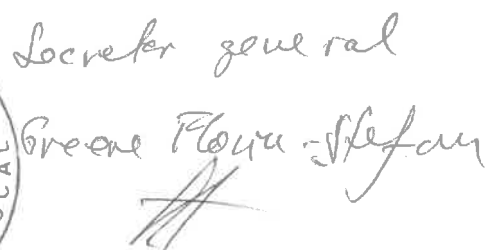 Secretar general
Greere Florin-Ștefan
OCAL